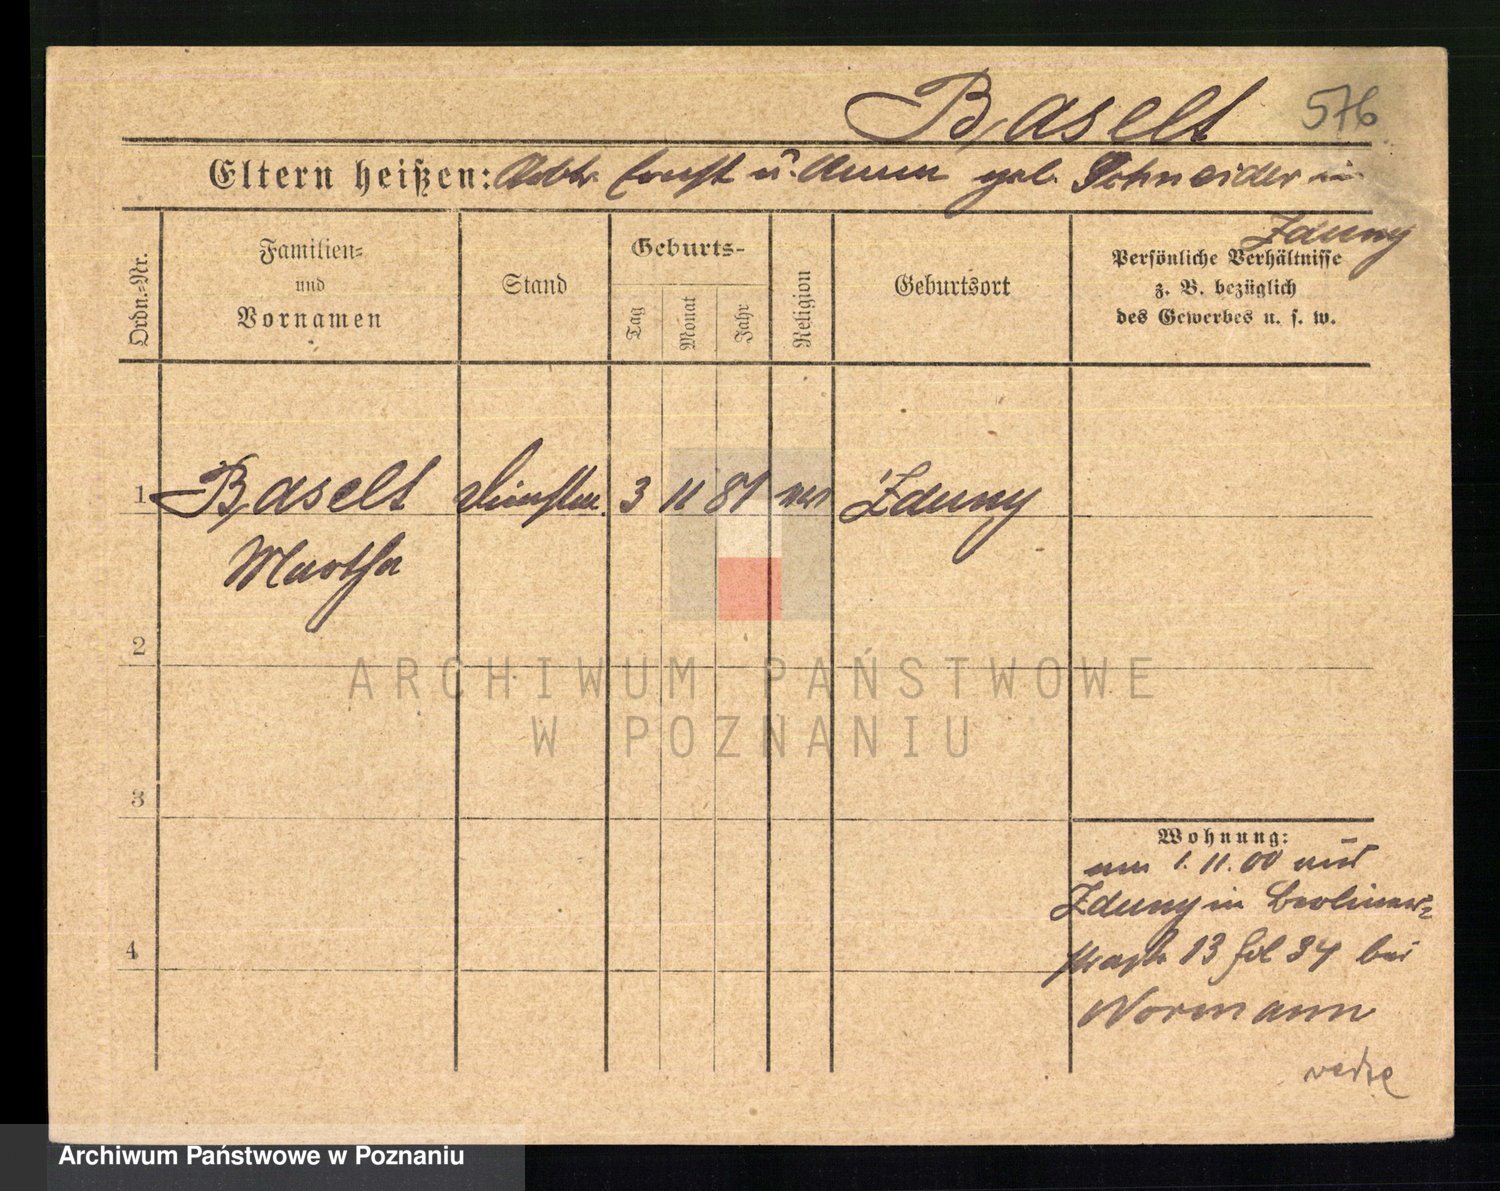 Baselt 576
Eltern heißen: Arbtr. Ernst u. Anna geb. Schneider in
Zduny
Ordn.=Nr.
Familien=
und
Vornamen
Stand
Geburts-
Tag
Monat
Jahr
Religion
Geburtsort
Persönliche Verhältnisse
z. B. bezüglich
des Gewerbes u. s. w.
1 Baselt 3 11 81 Zduny
Martha
2
ARCHIWUM PAŃSTWOWE
W POZNANIU
3
Wohnung:
am 1. 11. 00 aus
Zduny in Berliner=
straße 13 bei
4
Normann
Archiwum Państwowe w Poznaniu